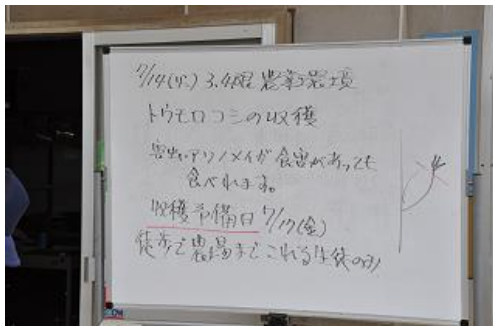 7/14(火) 3.4限 農業環境
トウモロコシの収穫
害虫アワノメイガ 食害があっても
食べれます。
収穫予備日 7/17(金)
徒歩で農場までこれる生徒のみ